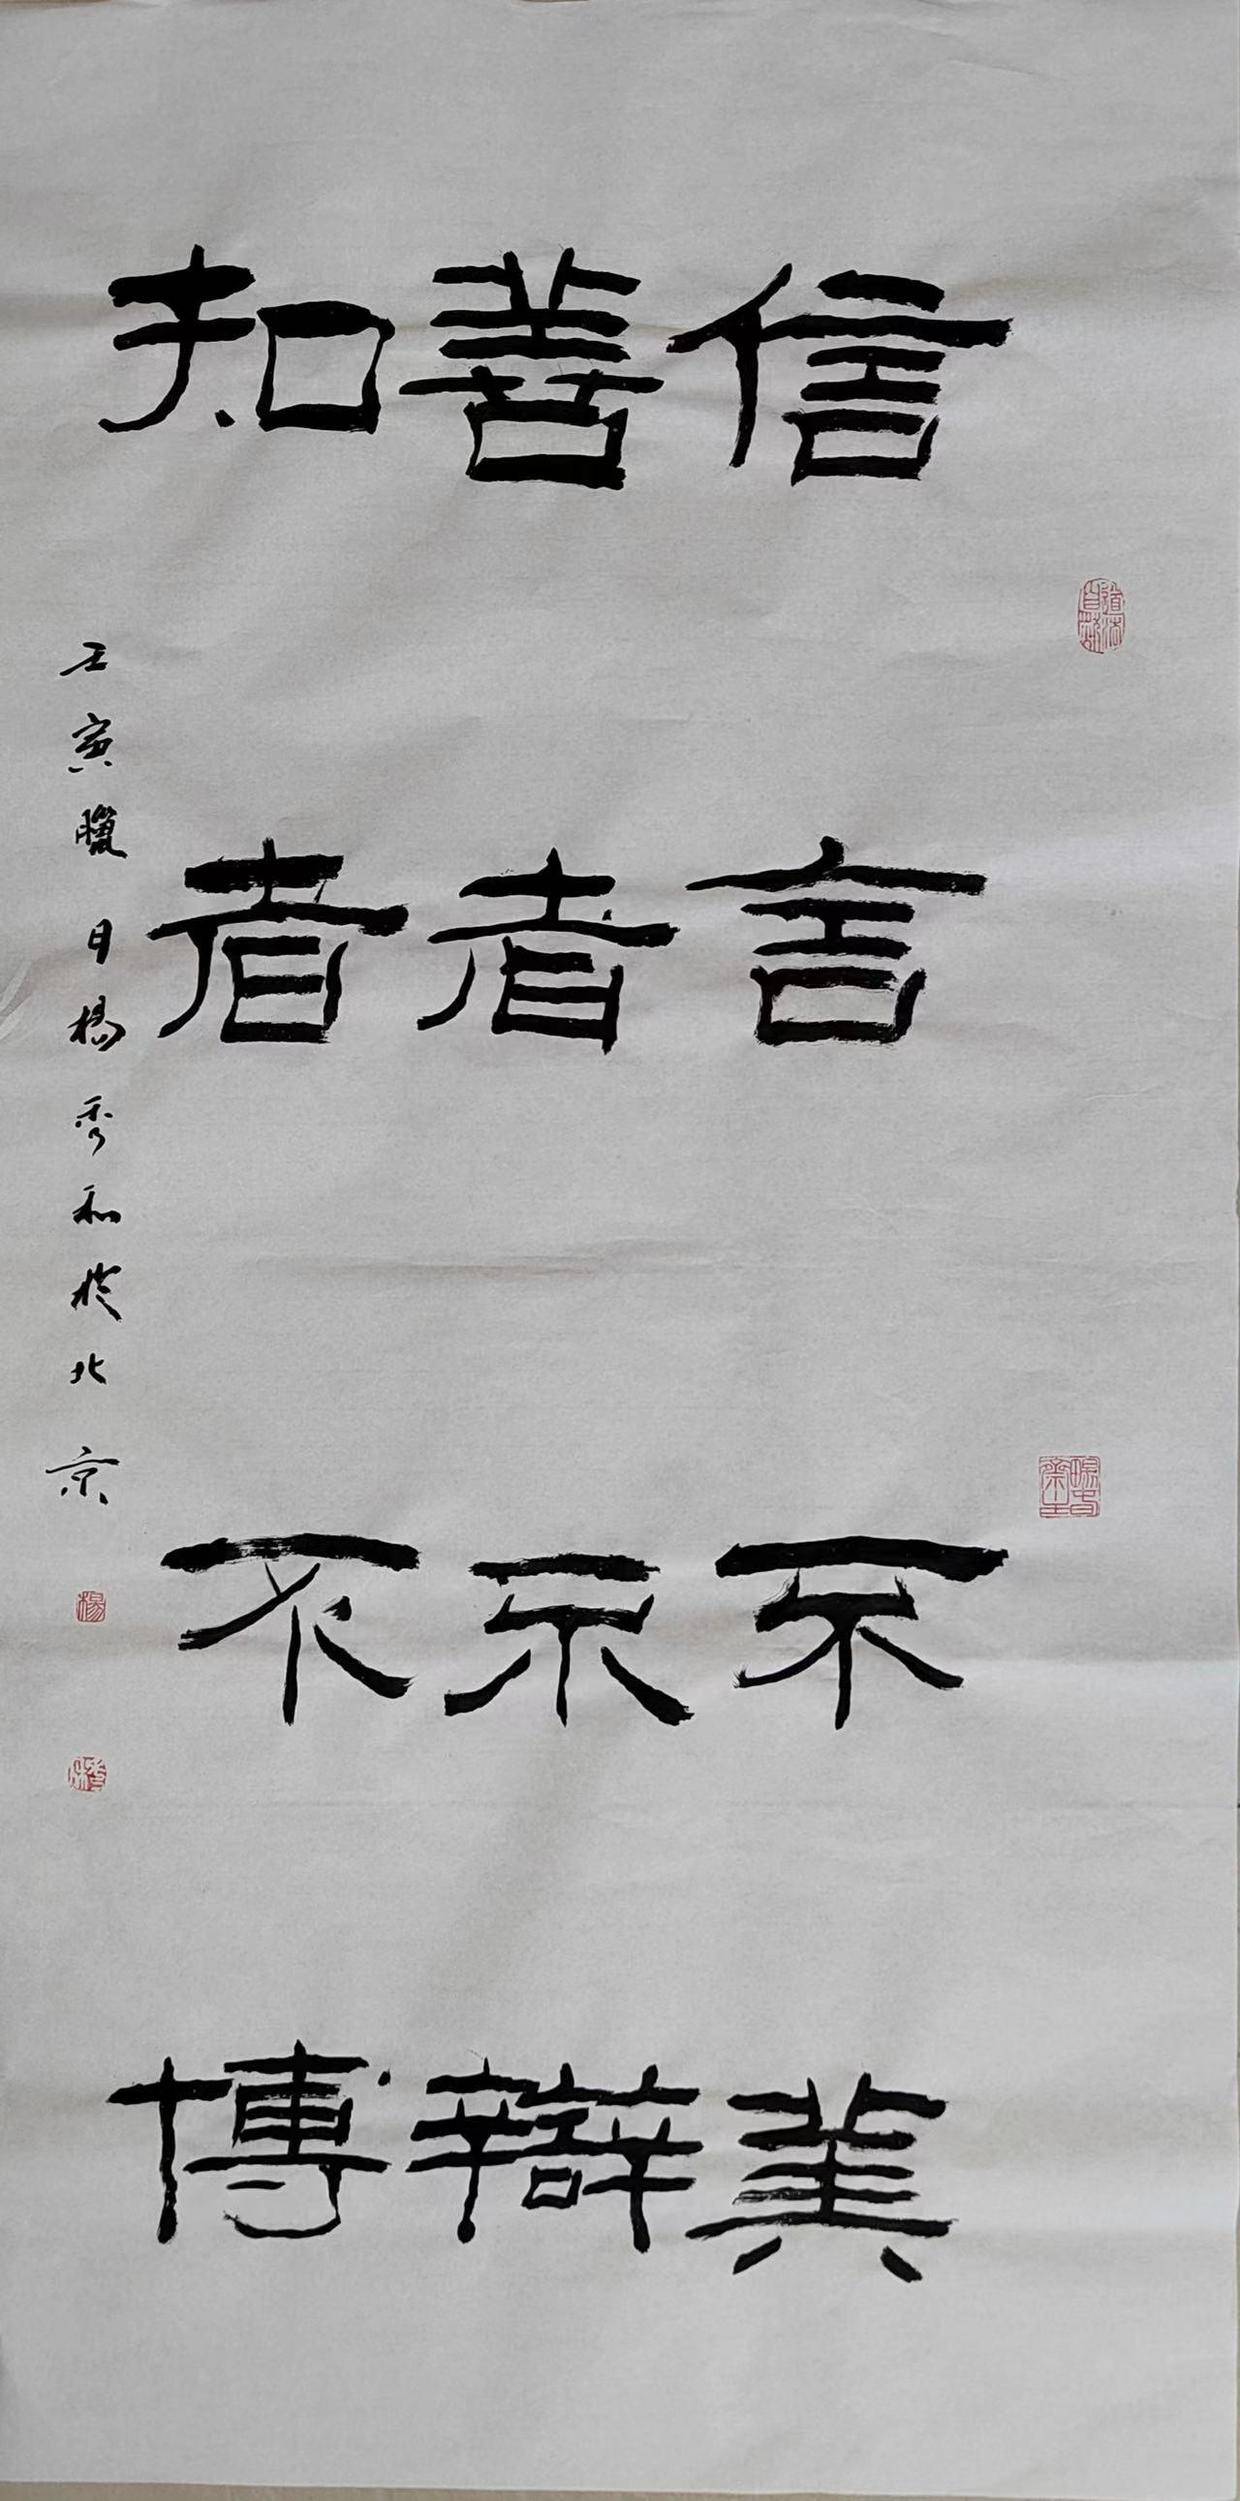 信言不美
善者不辯
知者不博
壬寅臘月楊秀和於北京
道法自然
楊